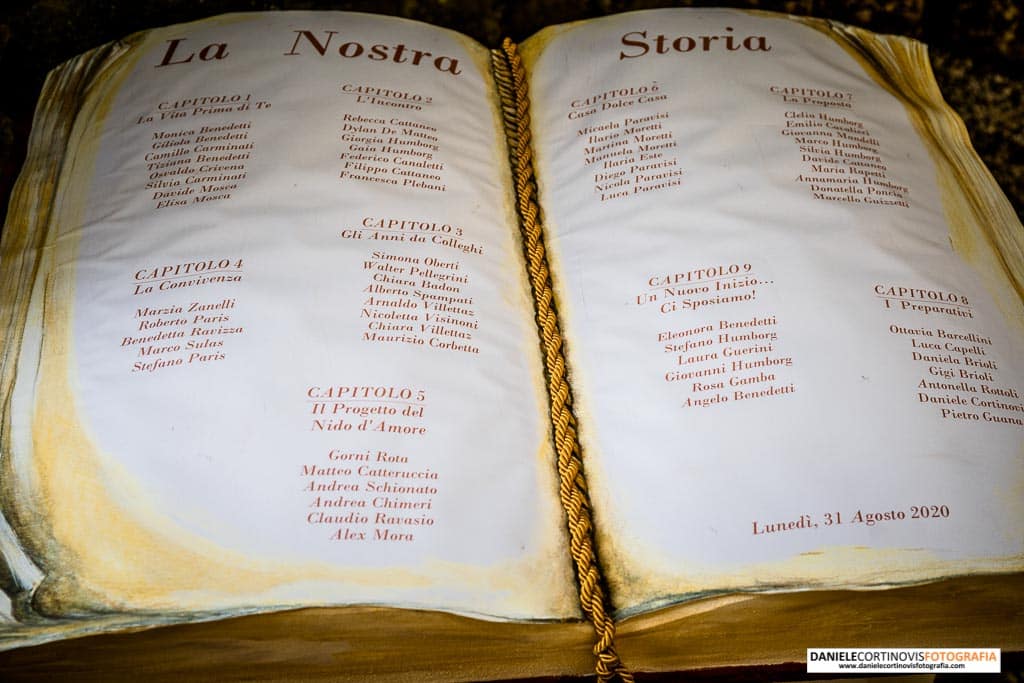 La Nostra Storia
CAPITOLO 1
La Vita Prima di Te
Monica Benedetti
Giliola Benedetti
Camillo Carminati
Tiziana Benedetti
Osvaldo Crivena
Silvia Carminati
Davide Mosca
Elisa Mosca
CAPITOLO 2
L'Incontro
Rebecca Cattaneo
Dylan De Matteo
Giorgia Humborg
Gaia Humborg
Federico Canaletti
Filippo Cattaneo
Francesca Plebani
CAPITOLO 3
Gli Anni da Colleghi
Simona Oberti
Walter Pellegrini
Chiara Badon
Alberto Spampati
Arnaldo Villettaz
Nicoletta Visinoni
Chiara Villettaz
Maurizio Corbetta
CAPITOLO 4
La Convivenza
Marzia Zanelli
Roberto Paris
Benedetta Ravizza
Marco Sulas
Stefano Paris
CAPITOLO 5
Il Progetto del
Nido d'Amore
Gorni Rota
Matteo Catteruccia
Andrea Schionato
Andrea Chimeri
Claudio Ravasio
Alex Mora
CAPITOLO 6
Casa Dolce Casa
Micaela Paravisi
Ilario Moretti
Martina Moretti
Manuela Moretti
Ilaria Este
Diego Paravisi
Nicola Paravisi
Luca Paravisi
CAPITOLO 7
La Proposta
Clelia Humborg
Emilio
Giovanna Mandelli
Marco Humborg
Silvia Humborg
Davide Cattaneo
Maria Rapetti
Annamaria Humborg
Donatella Poncia
Marcello Guizzetti
CAPITOLO 8
I Preparativi
Ottavia Barcellini
Luca Capelli
Daniela Brioli
Gigi Brioli
Antonella Rottoli
Daniele Cortinovi
Pietro Guana
CAPITOLO 9
Un Nuovo Inizio...
Ci Sposiamo!
Eleonora Benedetti
Stefano Humborg
Laura Guerini
Giovanni Humborg
Rosa Gamba
Angelo Benedetti
Lunedì, 31 Agosto 2020
DANIELECORTINOVISFOTOGRAFIA
www.danielecortinovisfotografia.com